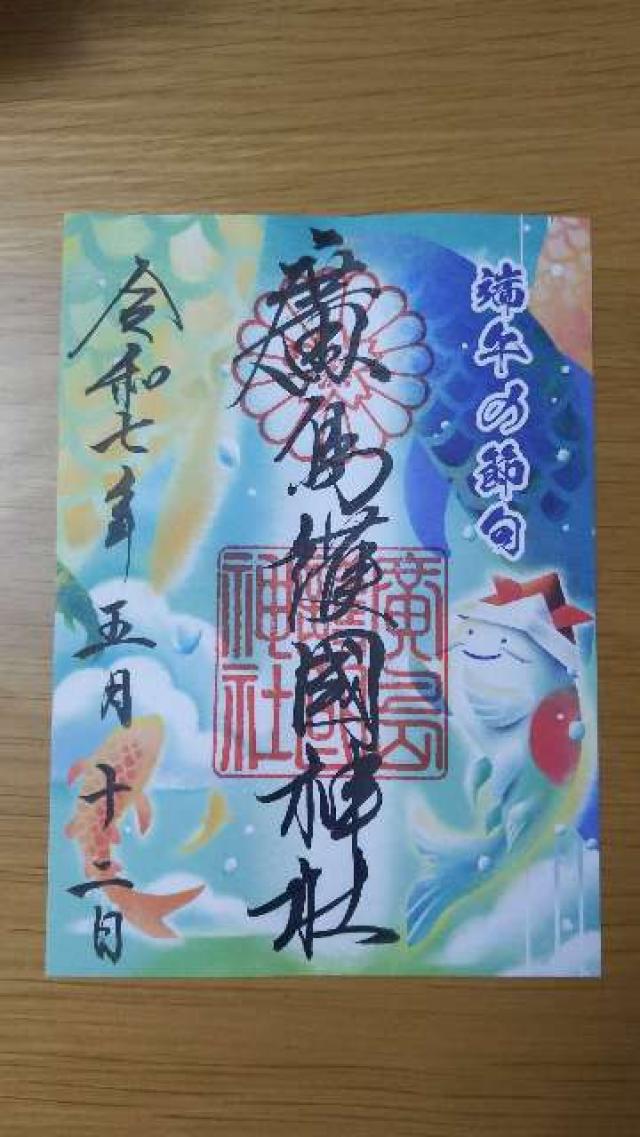 端午の節句
廣島護國神社
廣島
護國
神社
令和七年五月十二日